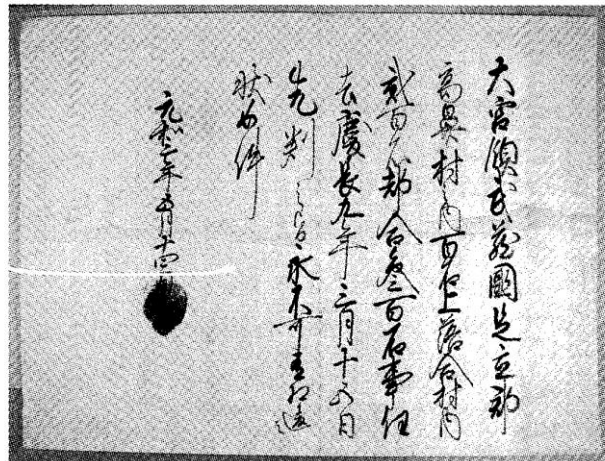 大宮領武蔵國足立郡
高鼻村内百石上落合村内
弐百石都合参百石事任
去慶長九年三月十五日
先判之旨永不可有相違
状如件
元和三年五月十四日